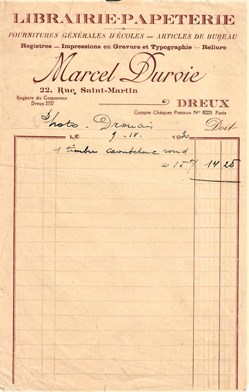 LIBRAIRIE-PAPETERIE
FOURNITURES GÉNÉRALES D'ÉCOLES — ARTICLES DE BUREAU
Registres — Impressions en Gravure et Typographie — Reliure
Marcel Duroie
22, Rue Saint-Martin
Registre du Commerce
Dreux 2197
DREUX
Compte Chèques Postaux N° Paris
Photo. Drouais Doit
LE
1 timbre caoutchouc rond
14 25